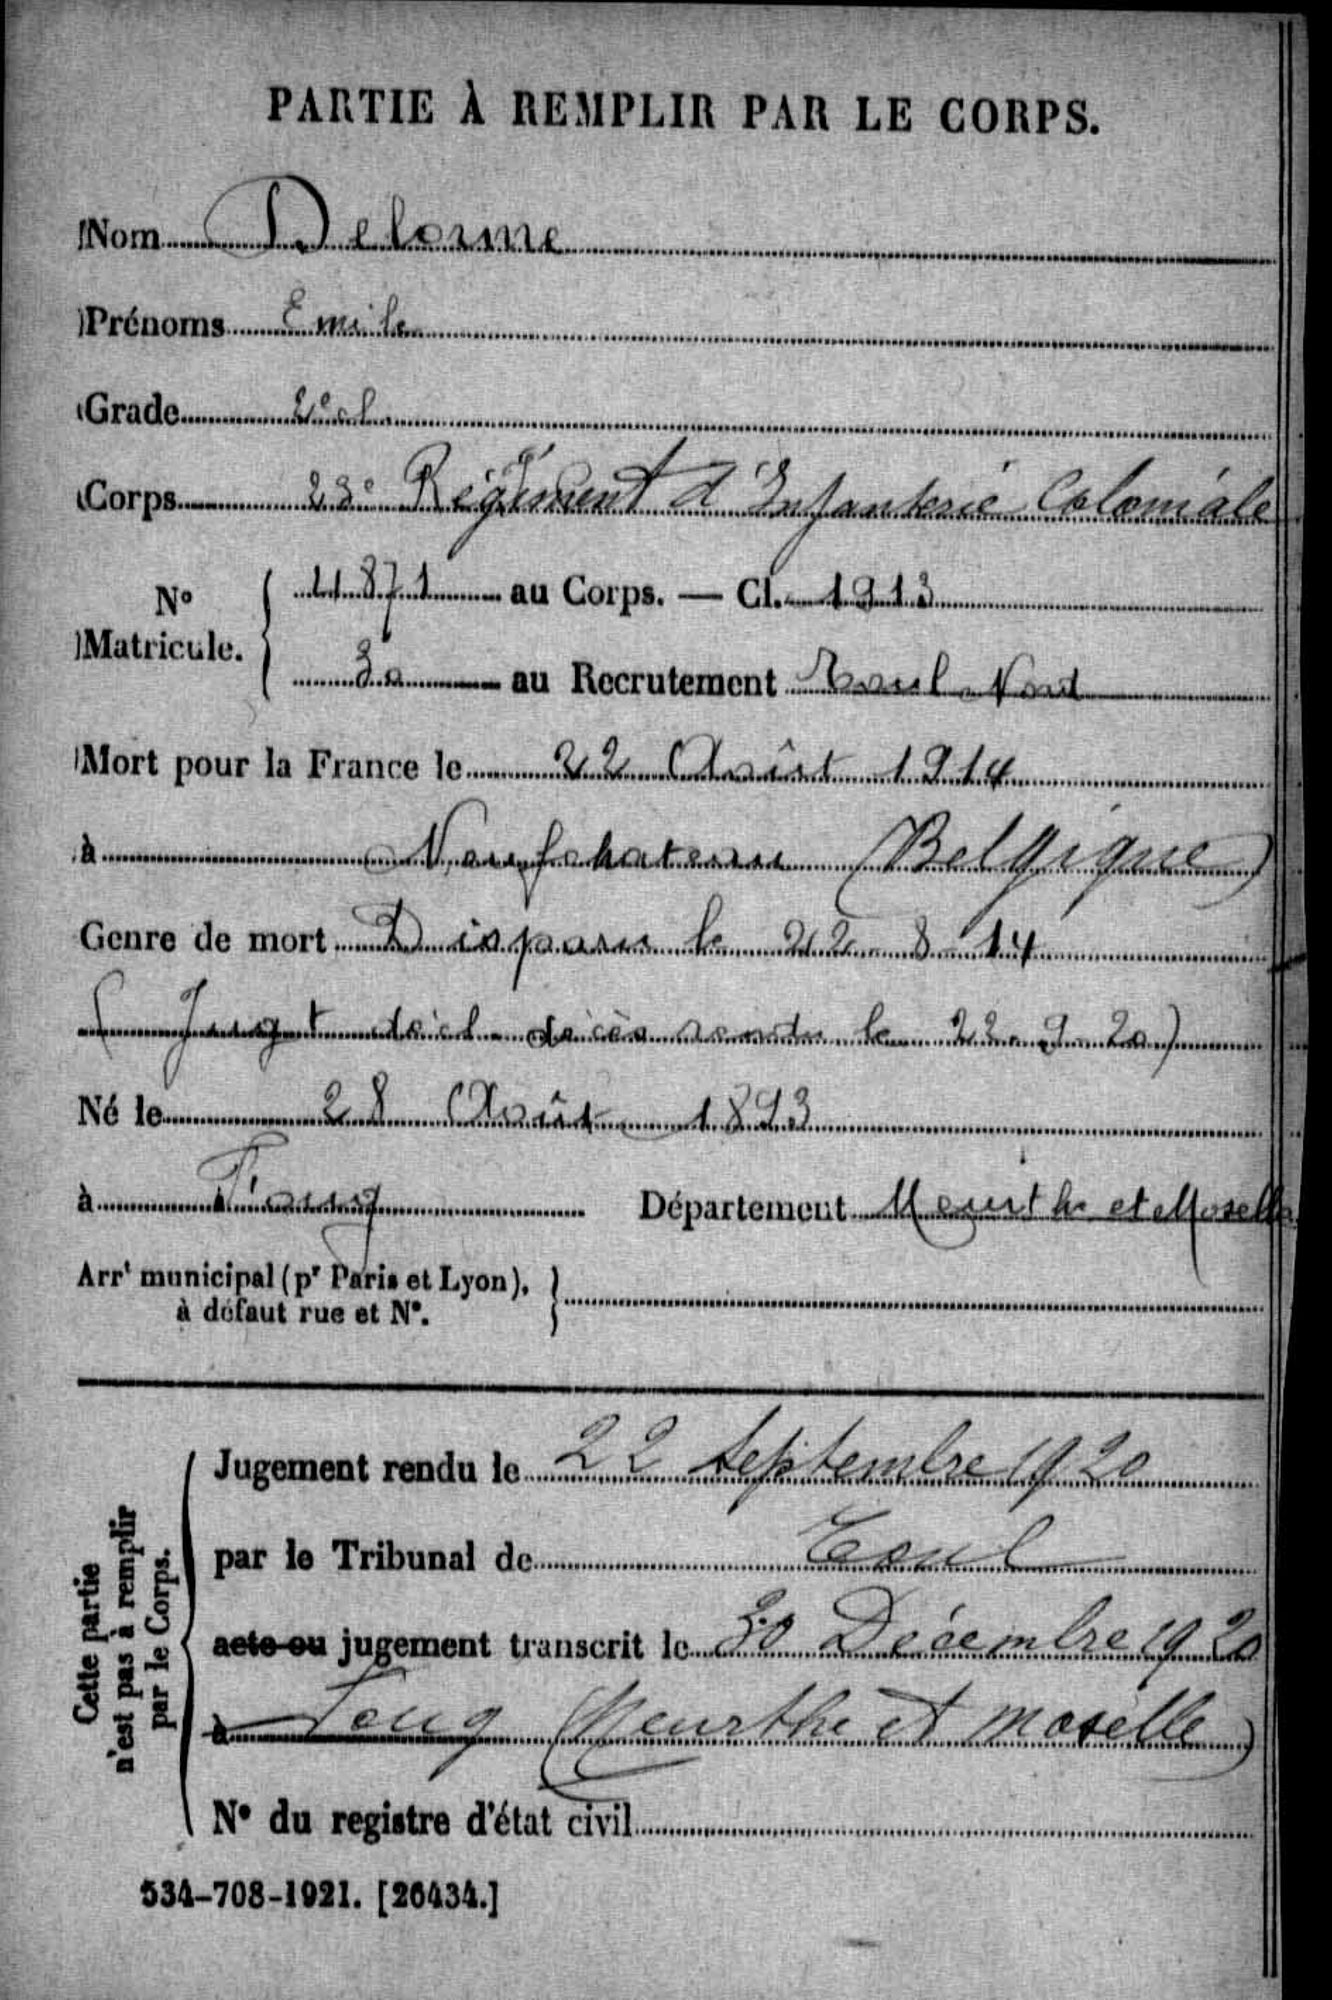 PARTIE À REMPLIR PAR LE CORPS.
Nom Delorme
Prénoms Emile
Grade 2e cl.
Corps 23e Régiment d'Infanterie Coloniale
No Matricule. 4871 au Corps. — Cl. 1913
30 au Recrutement Toul Nord
Mort pour la France le 22 Août 1914
à Neufchateau (Belgique)
Genre de mort Disparu le 22-8-14
(Jugt décl. décès rendu le 22.9.20)
Né le 28 Août 1893
à Foug Département Meurthe et Moselle
Arrt municipal (pr Paris et Lyon),
à défaut rue et No.
Cette partie
n'est pas à remplir
par le Corps.
Jugement rendu le 22 Septembre 1920
par le Tribunal de Toul
acte ou jugement transcrit le 30 Décembre 1920
à Foug (Meurthe et Moselle)
No du registre d'état civil
534-708-1921. [26434.]